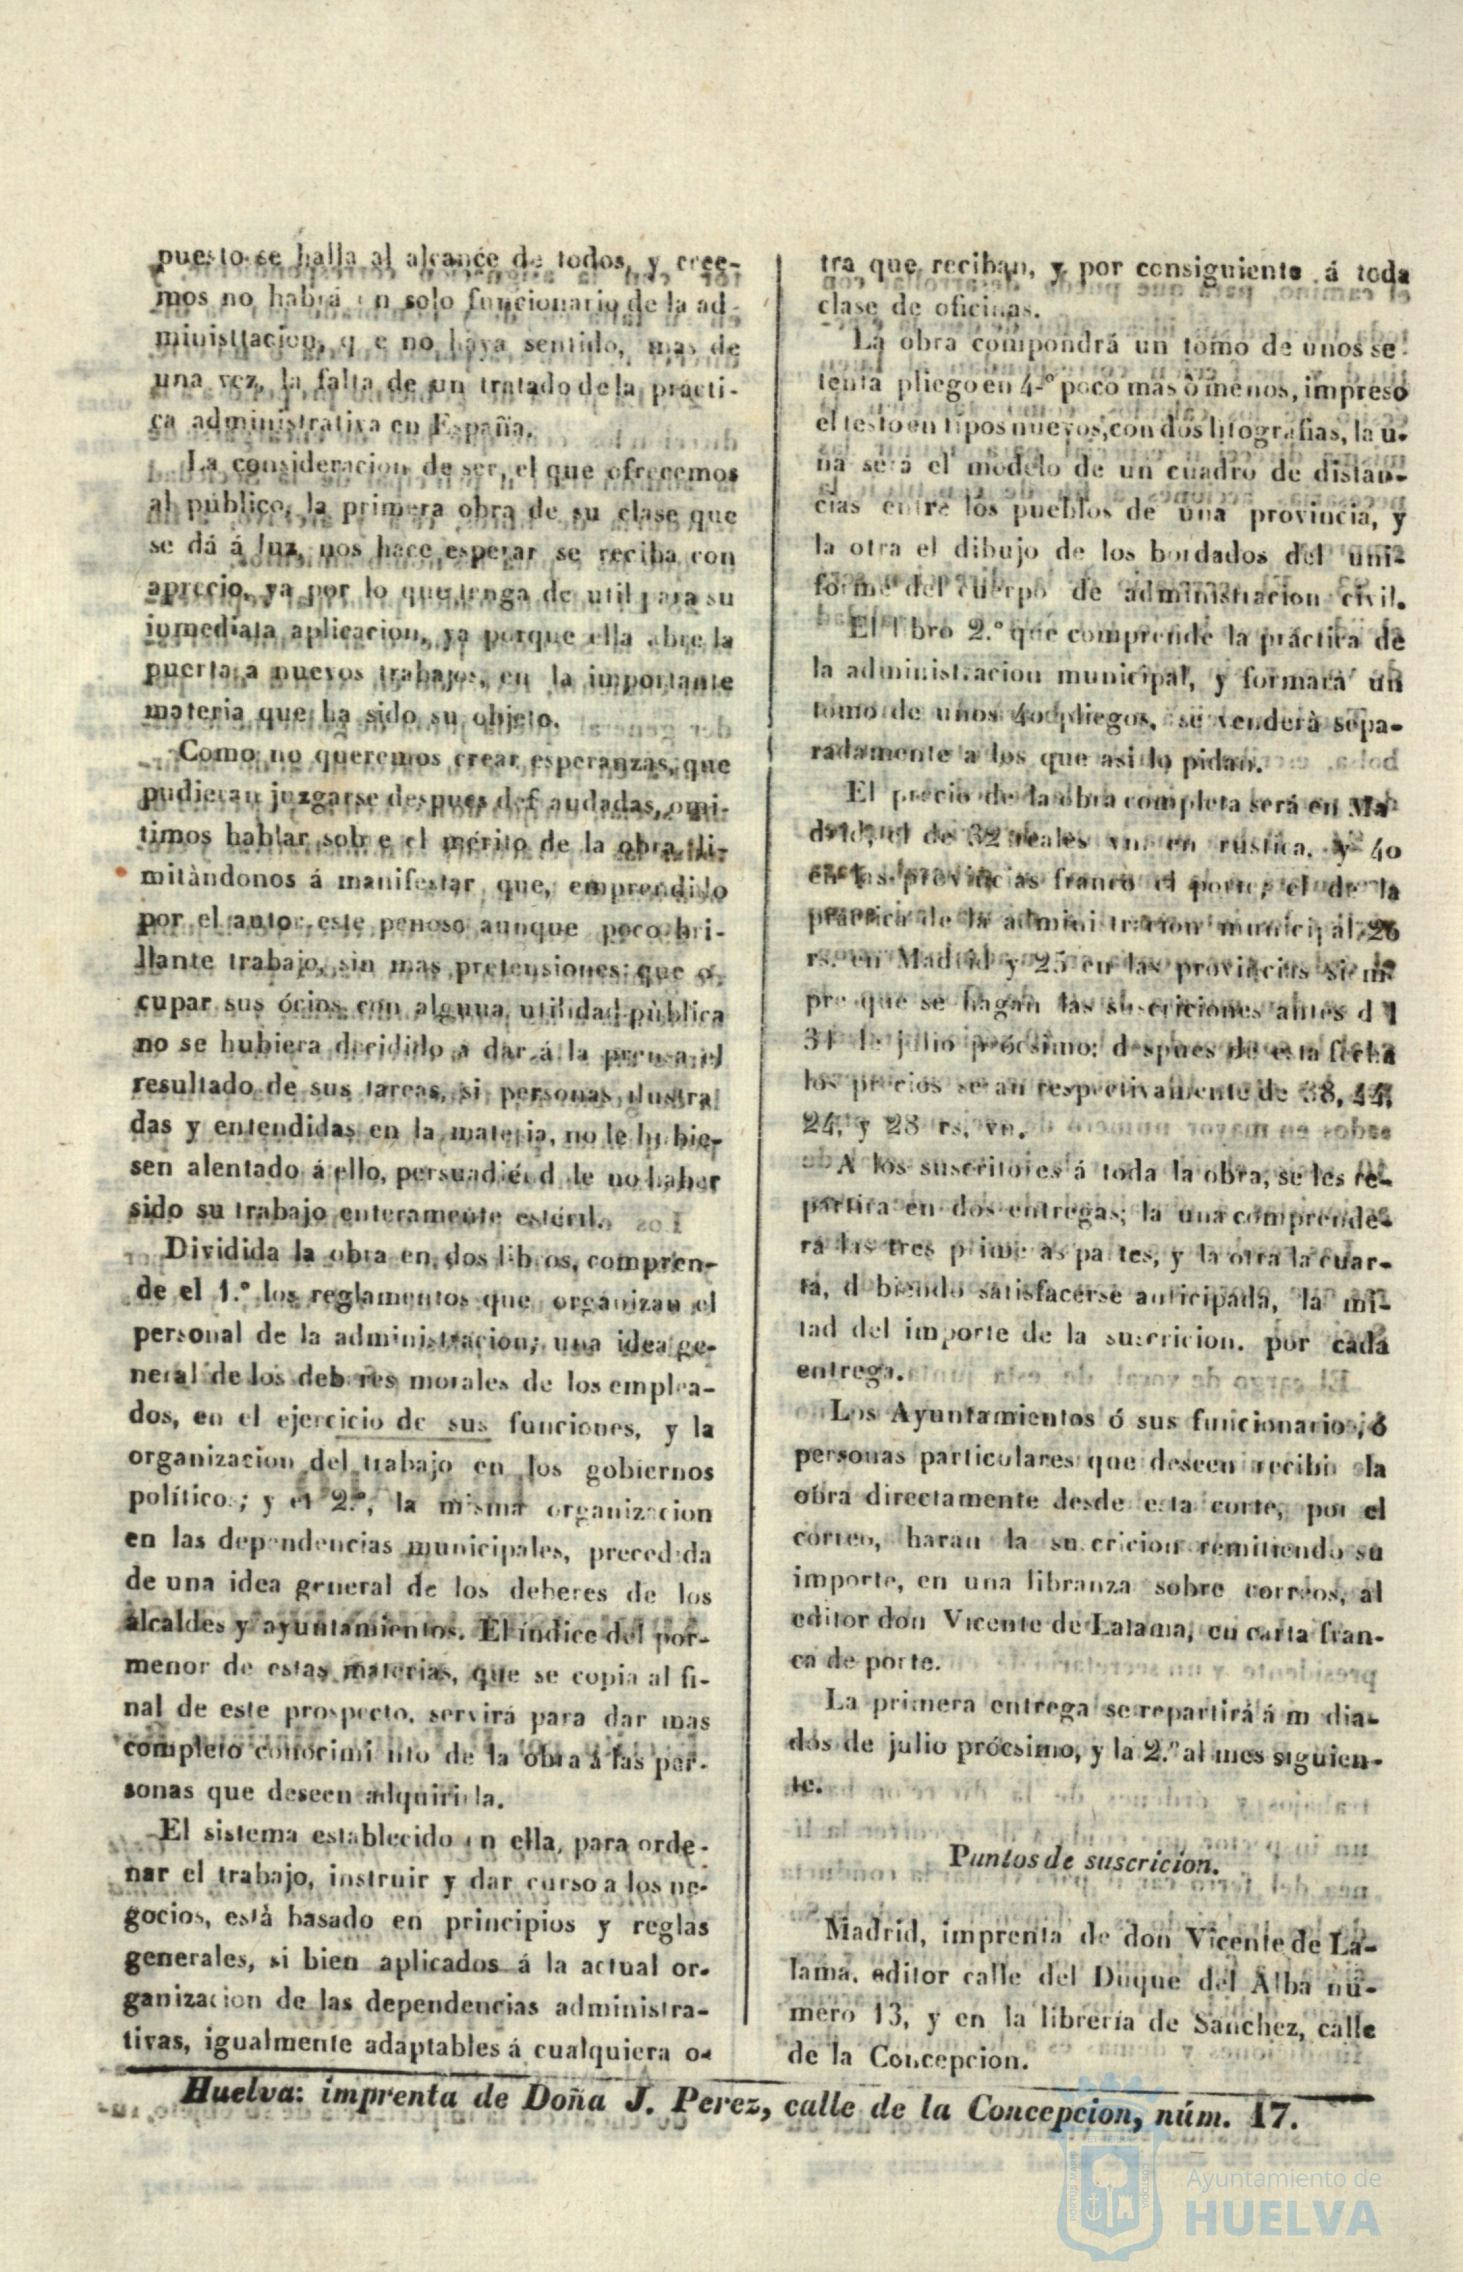 puesto se halla al alcance de todos, y cree-
mos no habrá en solo funcionario de la ad-
ministtacion, q e no haya sentido, mas de
una vez, la falta de un tratado de la prácti-
ca administrativa en España.
La consideracion de ser, el que ofrecemos
al público, la primera obra de su clase que
se dá á luz, nos hace esperar se reciba con
aprecio, ya por lo que tenga de util para su
inmediata aplicacion, ya porque ella abre la
puerta a nuevos trabajos, en la importante
materia que ha sido su objeto.
Como no queremos crear esperanzas, que
pudieran juzgarse despues def audadas, omi-
timos hablar sobre el mérito de la obra, li-
mitàndonos á manifestar que, emprendido
por el autor este penoso aunque poco bri-
llante trabajo, sin mas pretensiones que o-
cupar sus ócios con alguna utilidad pùblica
no se hubiera decidido a dar á la prensa el
resultado de sus tareas, si personas ilustra
das y entendidas en la materia, no le hubie-
sen alentado á ello, persuadiéndole no haber
sido su trabajo enteramente estéril.
Dividida la obra en dos libros, compren-
de el 1.º los reglamentos que organizan el
personal de la administracion; una idea ge-
neral de los deberes morales de los emplea-
dos, en el ejercicio de sus funciones, y la
organizacion del trabajo en los gobiernos
político ; y el 2.º, la misma organizacion
en las dependencias municipales, precedida
de una idea general de los deberes de los
alcaldes y ayuntamientos. El índice del por-
menor de estas materias, que se copia al fi-
nal de este prospecto, servirá para dar mas
completo conocimiento de la obra á las per-
sonas que deseen adquirirla.
El sistema establecido en ella, para orde-
nar el trabajo, instruir y dar curso a los ne-
gocios, està basado en principios y reglas
generales, si bien aplicados á la actual or-
ganizacion de las dependencias administra-
tivas, igualmente adaptables á cualquiera o-
tra que reciban, y por consiguiente á toda
clase de oficinas.
La obra compondrá un tomo de unos se-
tenta pliego en 4.º poco mas ò menos, impreso
el testo en tipos nuevos, con dos litografias, la u-
na será el modelo de un cuadro de distan-
cias entre los pueblos de una provincia, y
la otra el dibujo de los bordados del uni-
forme del cuerpo de administracion civil.
El libro 2.º que comprende la práctica de
la administracion municipal, y formará un
tomo de unos 40 pliegos, se venderà sepa-
radamente a los que asi lo pidan.
El precio de la obra completa será en Ma
drid, el de 32 reales vn. en rustica, y 40
en las provincias franco el porte; el de la
práctica de la administracion municipal 26
rs. en Madrid y 25 en las provincias siem
pre que se hagan las suscriciones antes del
31 de julio prócsimo: despues de esta fecha
los precios seran respectivamente de 38, 44,
24, y 28 rs. vn.
A los suscritores á toda la obra, se les re-
partira en dos entregas; la una comprende-
rá las tres primeras partes, y la otra la cuar-
ta, debiendo satisfacerse anticipada, la mi-
tad del importe de la suscricion, por cada
entrega.
Los Ayuntamientos ó sus funcionarios, ó
personas particulares que deseen recibir la
obra directamente desde esta corte, por el
correo, haran la suscricion remitiendo su
importe, en una libranza sobre correos, al
editor don Vicente de Lalama, en carta fran-
ca de porte.
La primera entrega se repartirá á media-
dos de julio prócsimo, y la 2.ª al mes siguien-
te.
Puntos de suscricion.
Madrid, imprenta de don Vicente de La-
lama, editor calle del Duque del Alba nú-
mero 13, y en la librería de Sanchez, calle
de la Concepcion.
Huelva: imprenta de Doña J. Perez, calle de la Concepcion, núm. 17.
Ayuntamiento de
HUELVA